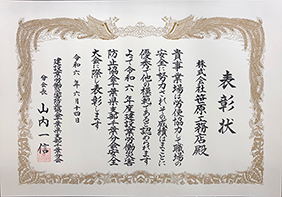 表彰状
株式会社笹原工務店殿
貴事業場は労使協力し職場の
安全に努力されその成績はまことに
優秀で他の模範であると認められます
よって令和六年度建設業労働災害
防止協会千葉県支部千葉分会安全
大会に際し表彰します
令和六年六月十四日
建設業労働災害防止協会千葉県支部千葉分会
分会長 山内一信